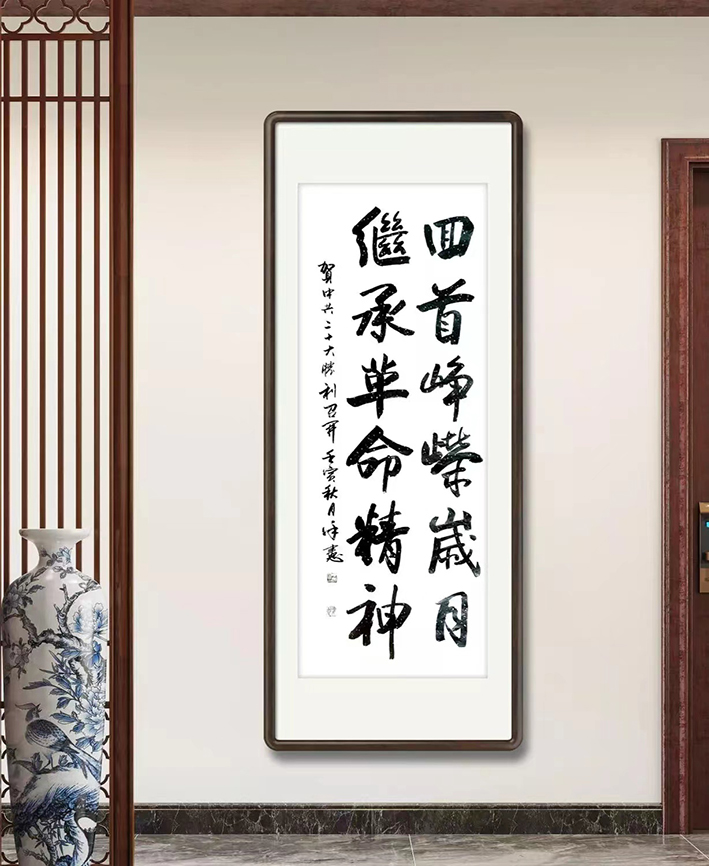 回首峥嶸歲月
繼承革命精神
贺中共二十大勝利召开 壬寅秋月